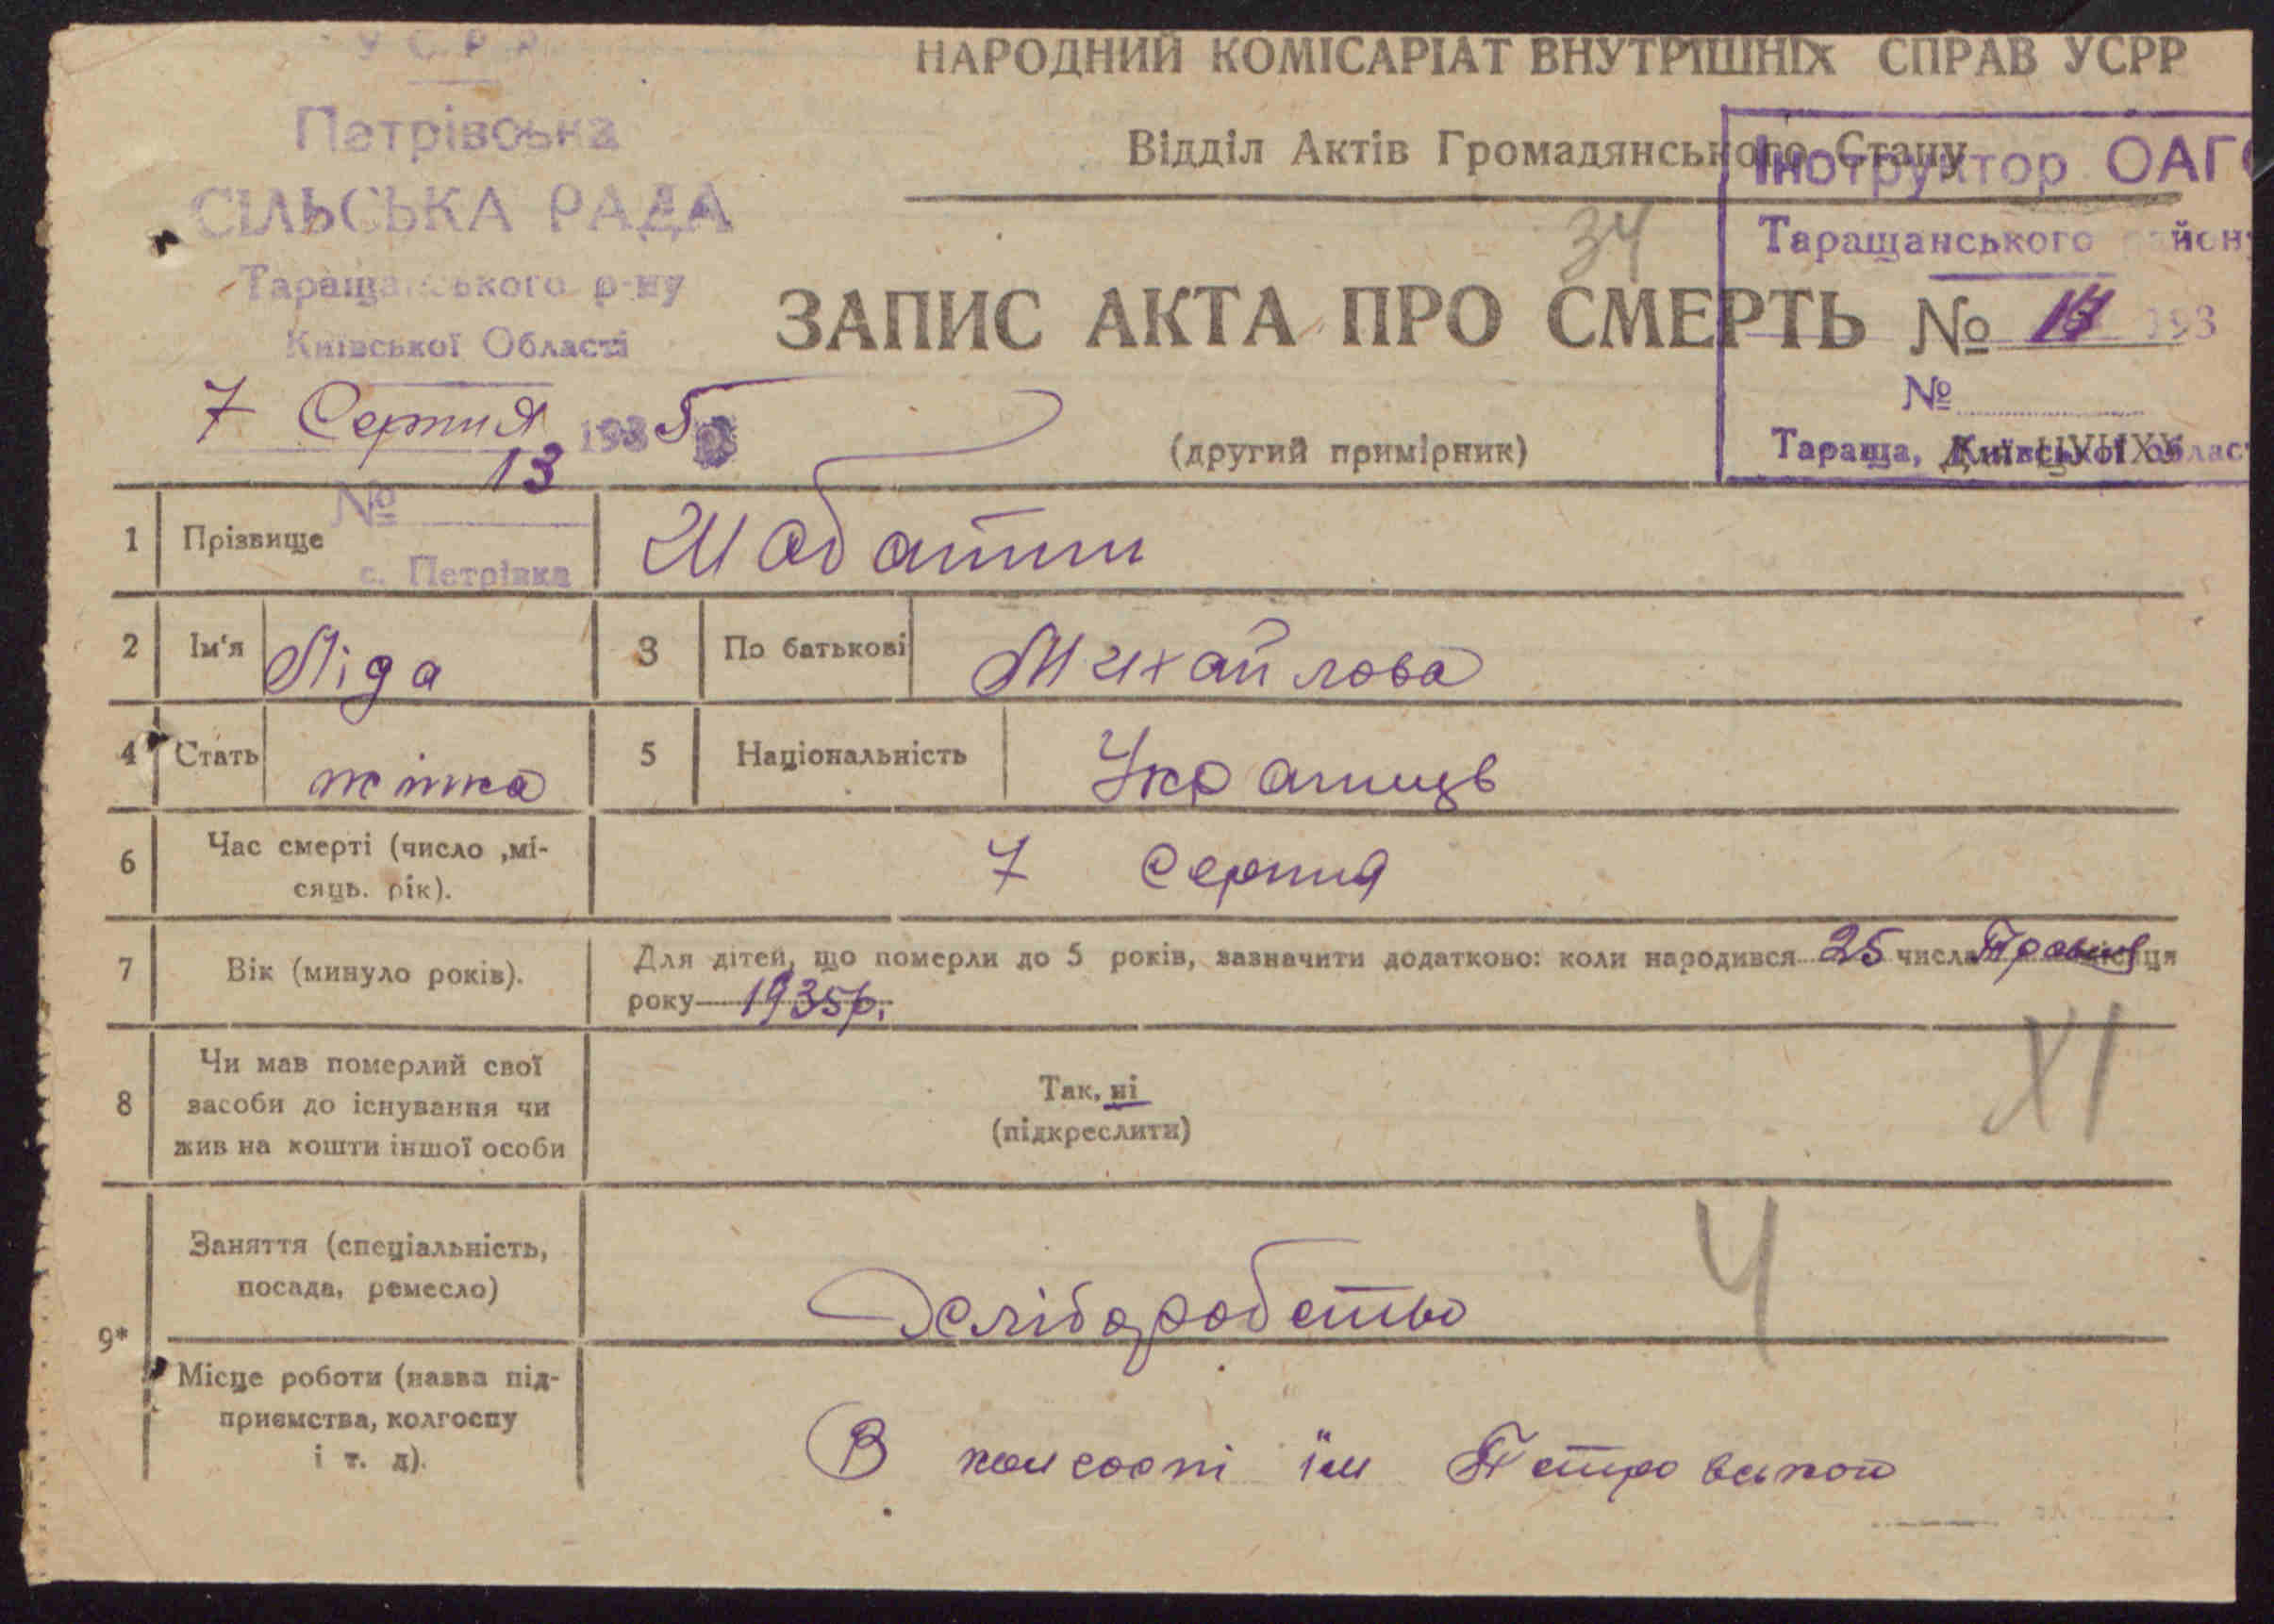 УСРР
Петрівська
СІЛЬСЬКА РАДА
Таращанського р-ну
Київської Області
7 Серпня 1935
№ 13
с. Петрівка
НАРОДНИЙ КОМІСАРІАТ ВНУТРІШНІХ СПРАВ УСРР
Відділ Актів Громадянського Стану
Інструктор ОАГС
Таращанського район
193
№
Тараща, Київської област
34
ЗАПИС АКТА ПРО СМЕРТЬ №
(другий примірник)
Для ЦУНХУ
1 Прізвище Шабатин
2 Ім'я Ліда 3 По батькові Михайлова
4 Стать жінка 5 Національність Українць
6 Час смерті (число ,мі-
сяць. рік). 7 Серпня
7 Вік (минуло років). Для дітей, що померли до 5 років, зазначити додатково: коли народився 25 числа Травня місяця
року 1935р.
XI
8 Чи мав померлий свої
засоби до існування чи
жив на кошти іншої особи
Так, ні
(підкреслити)
9* Заняття (спеціальність,
посада, ремесло) Хліборобство
Ч
Місце роботи (назва під-
приємства, колгоспу
і т. д). В колгоспі ім Петровського